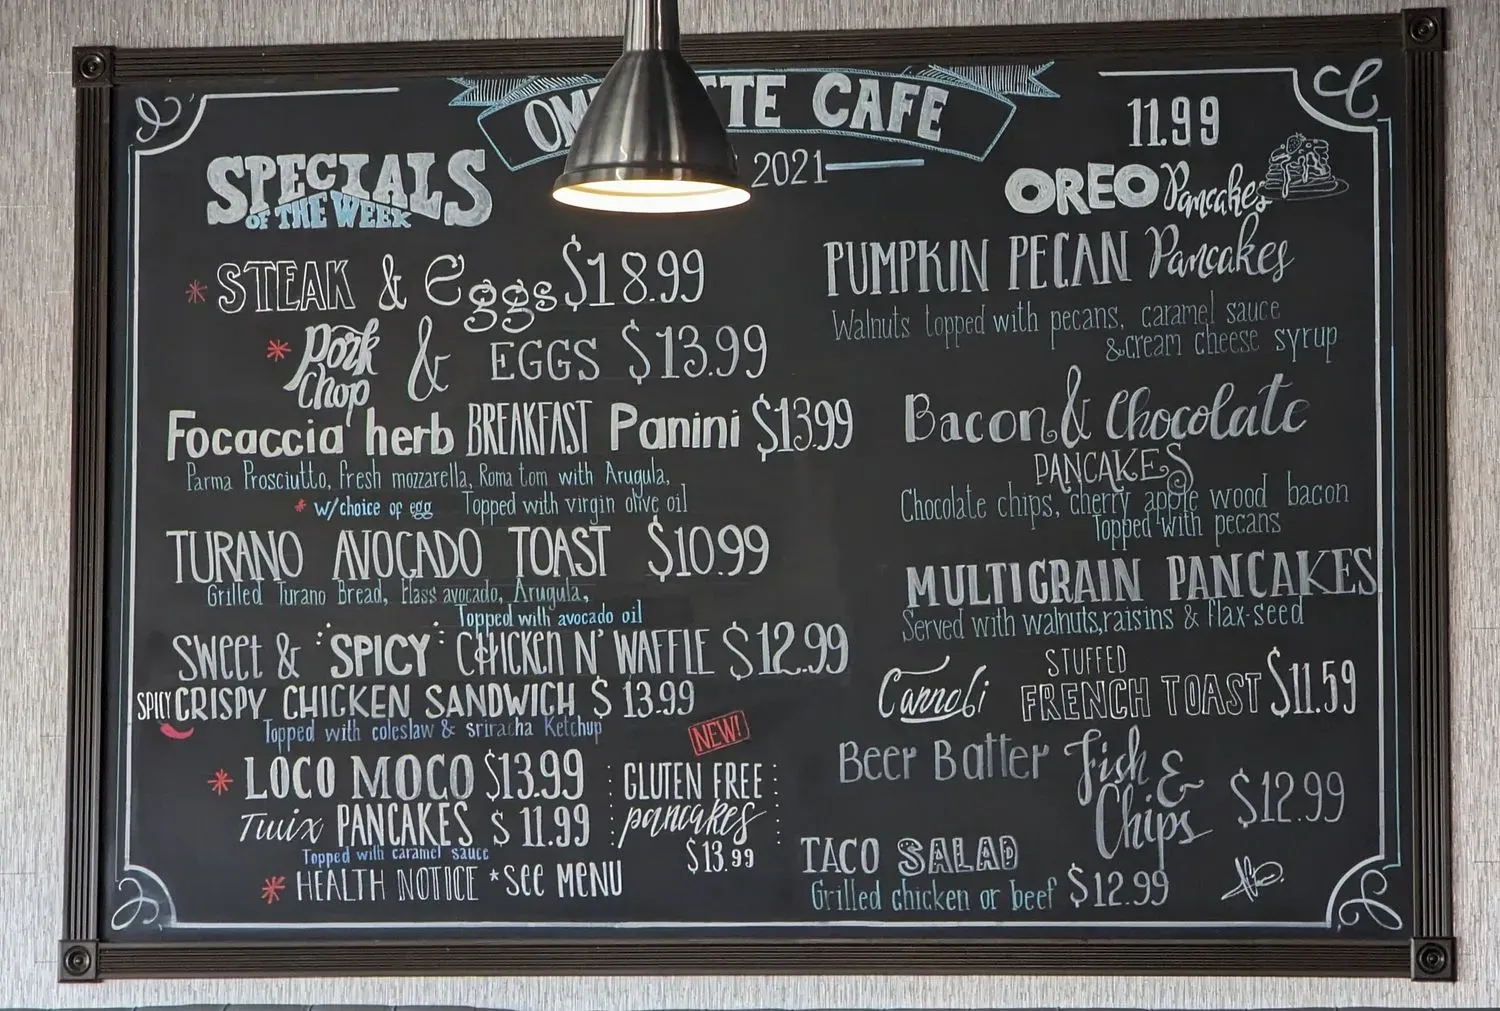 CAFE
2021
SPECIALS
OF THE WEEK
* STEAK & Eggs $18.99
* Pork Chop & EGGS $13.99
Focaccia herb BREAKFAST Panini $13.99
Parma Prosciutto, fresh mozzarella, Roma tom with Arugula,
* w/choice of egg Topped with virgin olive oil
TURANO AVOCADO TOAST $10.99
Grilled Turano Bread, Hass avocado, Arugula,
Topped with avocado oil
Sweet & "SPICY" Chicken N' WAFFLE $12.99
SPICY CRISPY CHICKEN SANDWICH $13.99
Topped with coleslaw & sriracha Ketchup
* LOCO MOCO $13.99
Twix PANCAKES $11.99
Topped with caramel sauce
* HEALTH NOTICE *See MENU
NEW!
GLUTEN FREE
pancakes
$13.99
11.99
OREO Pancakes
PUMPKIN PECAN Pancakes
Walnuts topped with pecans, caramel sauce
& cream cheese syrup
Bacon & Chocolate
PANCAKES
Chocolate chips, cherry apple wood bacon
Topped with pecans
MULTIGRAIN PANCAKES
Served with walnuts, raisins & flax-seed
Cannoli STUFFED
FRENCH TOAST $11.59
Beer Batter Fish &
Chips $12.99
TACO SALAD
Grilled chicken or beef $12.99